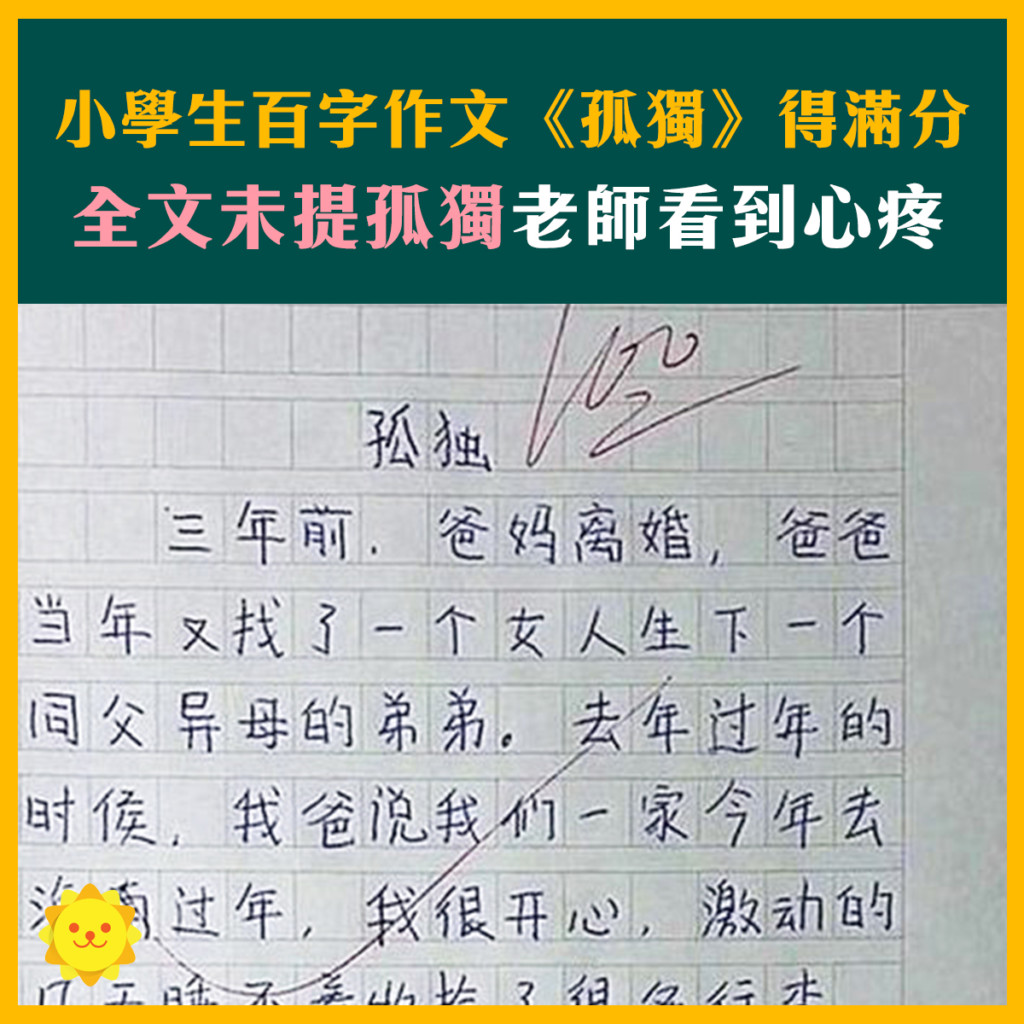 小學生百字作文《孤獨》得滿分
全文未提孤獨老師看到心疼
100
孤独
三年前.爸妈离婚,爸爸
当年又找了一个女人生下一个
同父异母的弟弟。去年过年的
时侯,我爸说我们一家今年去
过年,我很开心,激动的